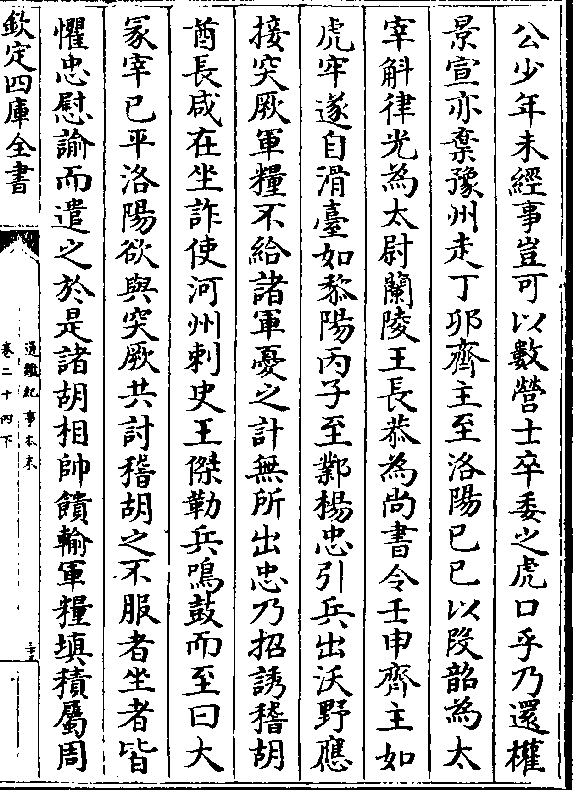 公少年未經事豈可以數營士卒委之虎口乎乃還權
景宣亦棄豫州走丁卯齊主至洛陽己巳以段韶為太
宰斛律光為太尉蘭陵王長恭為尚書令壬申齊主如
虎牢遂自滑臺如黎陽丙子至鄴楊忠引兵出沃野應
接突厥軍糧不給諸軍憂之計無所出忠乃招誘稽胡
酋長咸在坐詐使河州刺史王傑勒兵鳴鼓而至曰大
冢宰已平洛陽欲與突厥共討稽胡之不服者坐者皆
懼忠慰諭而遣之於是諸胡相帥饋輸軍糧填積屬周
欽定四庫全書
通鑑紀事本末
卷二十四下